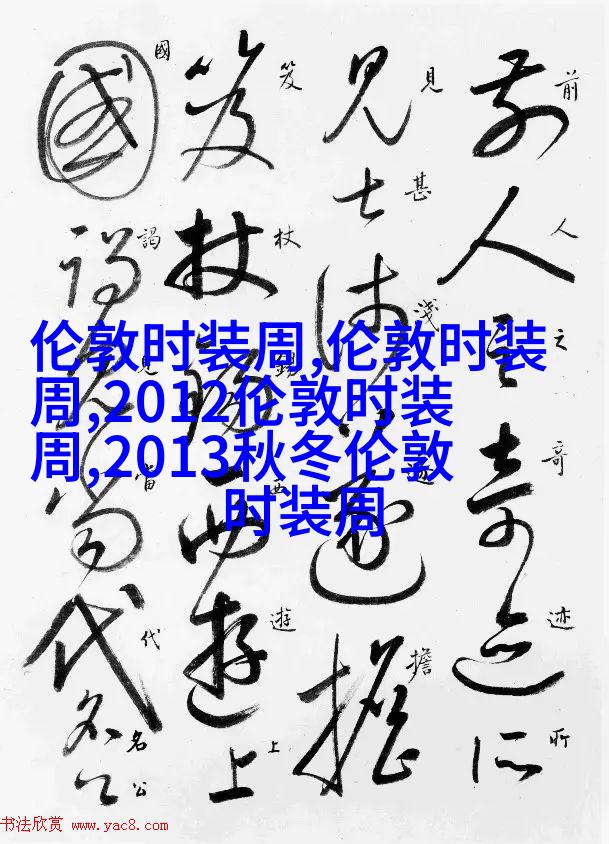 伦敦时装周,伦敦时装
周,2012伦敦时装
周,2013秋冬伦敦
时装周
前人之奇迹所
見甚淺遂擔
笈杖錫西遊上
國謁見當代名公
书法欣赏 www.yac8.com